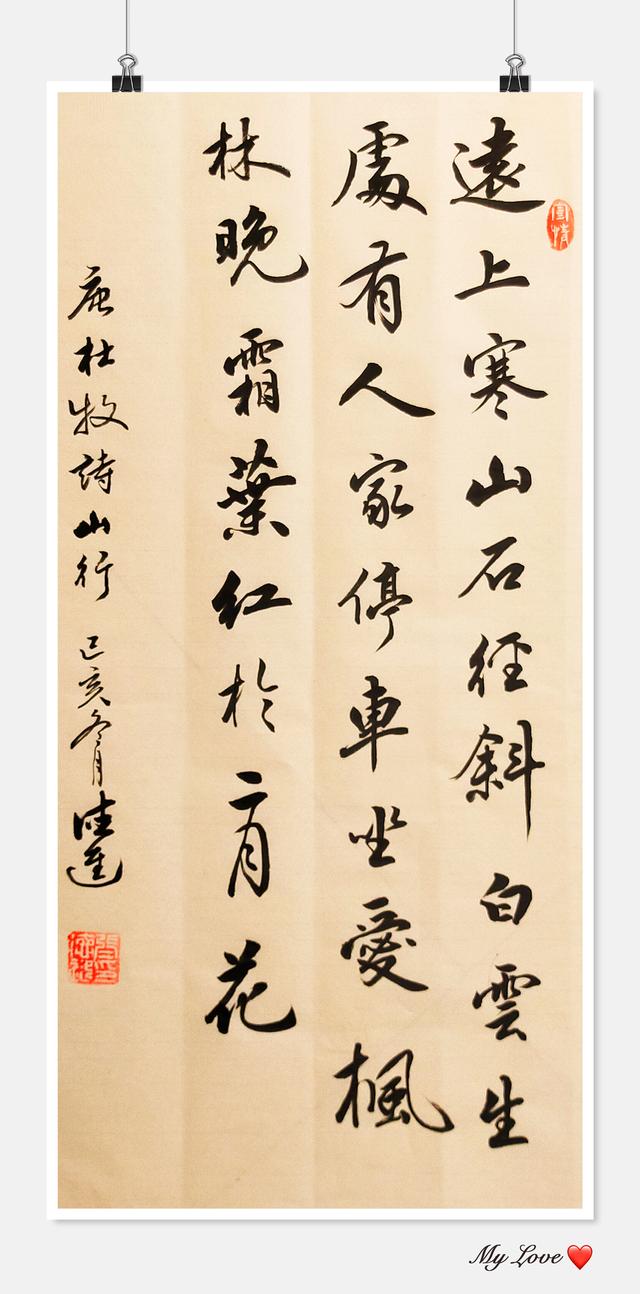 遠上寒山石徑斜白雲生
處有人家停車坐愛楓
林晚霜葉紅於二月花
唐杜牧詩山行 己亥冬月
My Love❤️